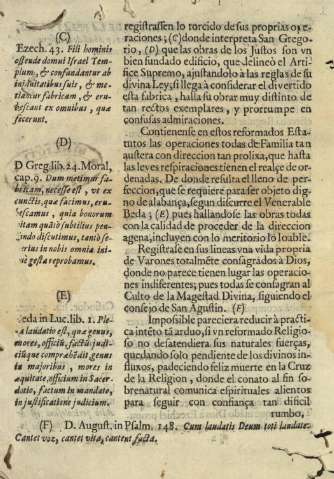 (C)
Ezech. 43. Fili hominis
ostende domui Israel Tem
plum, & confundantur ab
iniquitatibus suis, & me-
tiantur fabricam, & eru-
bescant ex omnibus, quæ
fecerunt.
(D)
D Greg. lib. 24. Moral,
cap. 9. Dum metimur fa-
bricam, necesse est, vt ex
cunctis, quæ facimus, eru-
bescamus, quia bonorum
vitam quātò subtilius pen-
pendo discutimus, tantò se-
vertius in nobis omnia ini-
què gesta reprobamus.
(E)
Beda in Luc. lib. 1. Ple-
na laudatio est, quæ genus,
mores, officiū, factū, judi-
ciūque comprehēdit, genus
in majoribus, mores in
æquitate, officium in Sacer
datio, factum in mandato,
in justificatione judicium.
registrassen lo torcido de sus proprias ope-
raciones; (C) donde interpreta San Grego-
rio, (D) que las obras de los Justos son vn
bien fundado edificio, que delineò el Arti-
fice Supremo, ajustandolo à las reglas de su
divina Ley; si llega à considerar el divertido
esta fabrica, halla su obrar muy distinto de
tan rectos exemplares, y prorrumpe en
confusas admiraciones.
Contienense en estos reformados Esta-
tutos las operaciones todas de Familia tan
austera con direccion tan prolixa, que hasta
las leves respiraciones tienen el realçe de or-
denadas. De donde resulta el lleno de per-
feccion, que se requiere para ser objeto dig-
no de alabança, segun discurre el Venerable
Beda; (E) pues hallandose las obras todas
con la calidad de proceder de la direccion
agena, incluyen con lo meritorio lo loable.
Registrase en sus lineas vna vida propria
de Varones totalmēte consagrados à Dios,
donde no parece tienen lugar las operacio-
nes indiferentes; pues todas se consagran al
Culto de la Magestad Divina, siguiendo el
consejo de San Agustin. (F)
Imposible pareciera reducir à practi-
ca intēto tā arduo, si vn reformado Religio-
so no desatendiera sus naturales fuerças,
quedando solo pendiente de los divinos in-
fluxos, padeciendo feliz muerte en la Cruz
de la Religion, donde el conato al fin so-
brenatural comunica espirituales alientos
para seguir con confiança tan dificil
rumbo,
(F) D. August. in Psalm. 148. Cum laudatis Deum toti laudate.
Cantet vox, cantet vita, cantent facta.